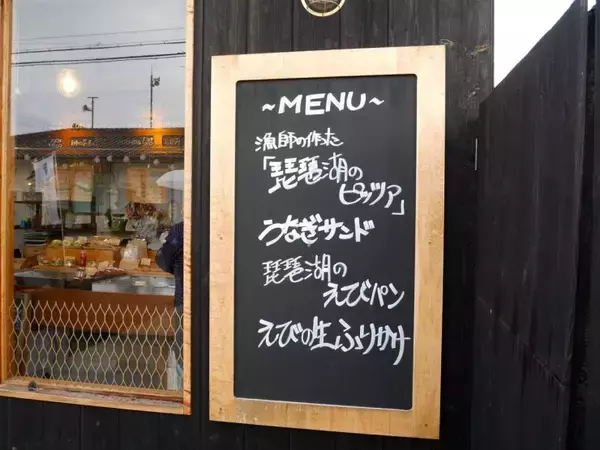 ~MENU~
漁師の作った
「琵琶湖の
ピッツァ」
うなぎサンド
琵琶湖の
えびパン
えびの生ふりかけ